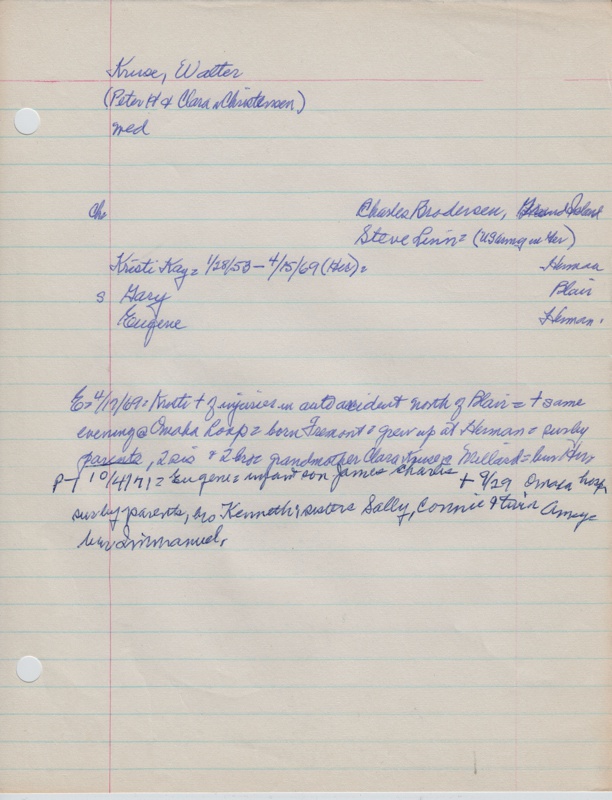 Kruse, Walter
(Peter H & Clara Christensen)
wed
Ch. Charles Brodersen, Grand Island
Steve Linn = (US Army in Ger)
Kristi Kay = 1/28/53 - 4/15/69 (Her) = Herman
s Gary Blair
Eugene Herman.
E = 4/17/69 = Kristi + of injuries in auto accident north of Blair = + same
evening @ Omaha hosp = born Fremont = grew up at Herman = surv by
parents, 2 sis & 2 bros = grandmother Clara Kruse @ Millard = bur Her
P-T 10/4/71 = Eugene = infant son James Charles + 9/29 Omaha hosp
surv by parents, bro Kenneth, sisters Sally, Connie & twin Amaye
bur Immanuel.